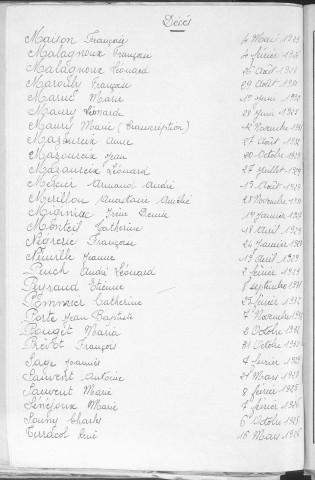 Décès
Maison François 4 Mai 1929
Malagnoux François 4 février 1926
Malagnoux Léonard 26 Août 1928
Marouby François 29 Août 1930
Marué Marie 1er Juin
Maury Léonarde 28 Juin
Maury Marie (transcription) 12 Novembre
Mazoureux Anne 27 Août 1932
Mazoureux Jean 20 Octobre 1929
Mazoureux Léonard 27 Juillet 1929
Armand André 15 Août
Mérillou Anastasie Amélie 28 Novembre
Migniac 19 Janvier
Monteil Catherine 18 Avril 1929
Négrerie François 24 Janvier
Neuville Jeanne 13 Avril 1929
Puech André Léonard 2 février 1929
Peyraud Etienne 8 septembre 1931
Pommier Catherine 25 février 1932
Porte Jean Baptiste 7 Novembre
Pouget Maria 2 Octobre
Prévot François 31 Octobre
Sage Joannès 4 février
Sauvent Antoine 21 Mars
Sauvent Marie 8 février 1925
Sénéjoux Marie 7 février 1926
Souny Charles 6 Octobre 1925
Terracol René 16 Mars 1926